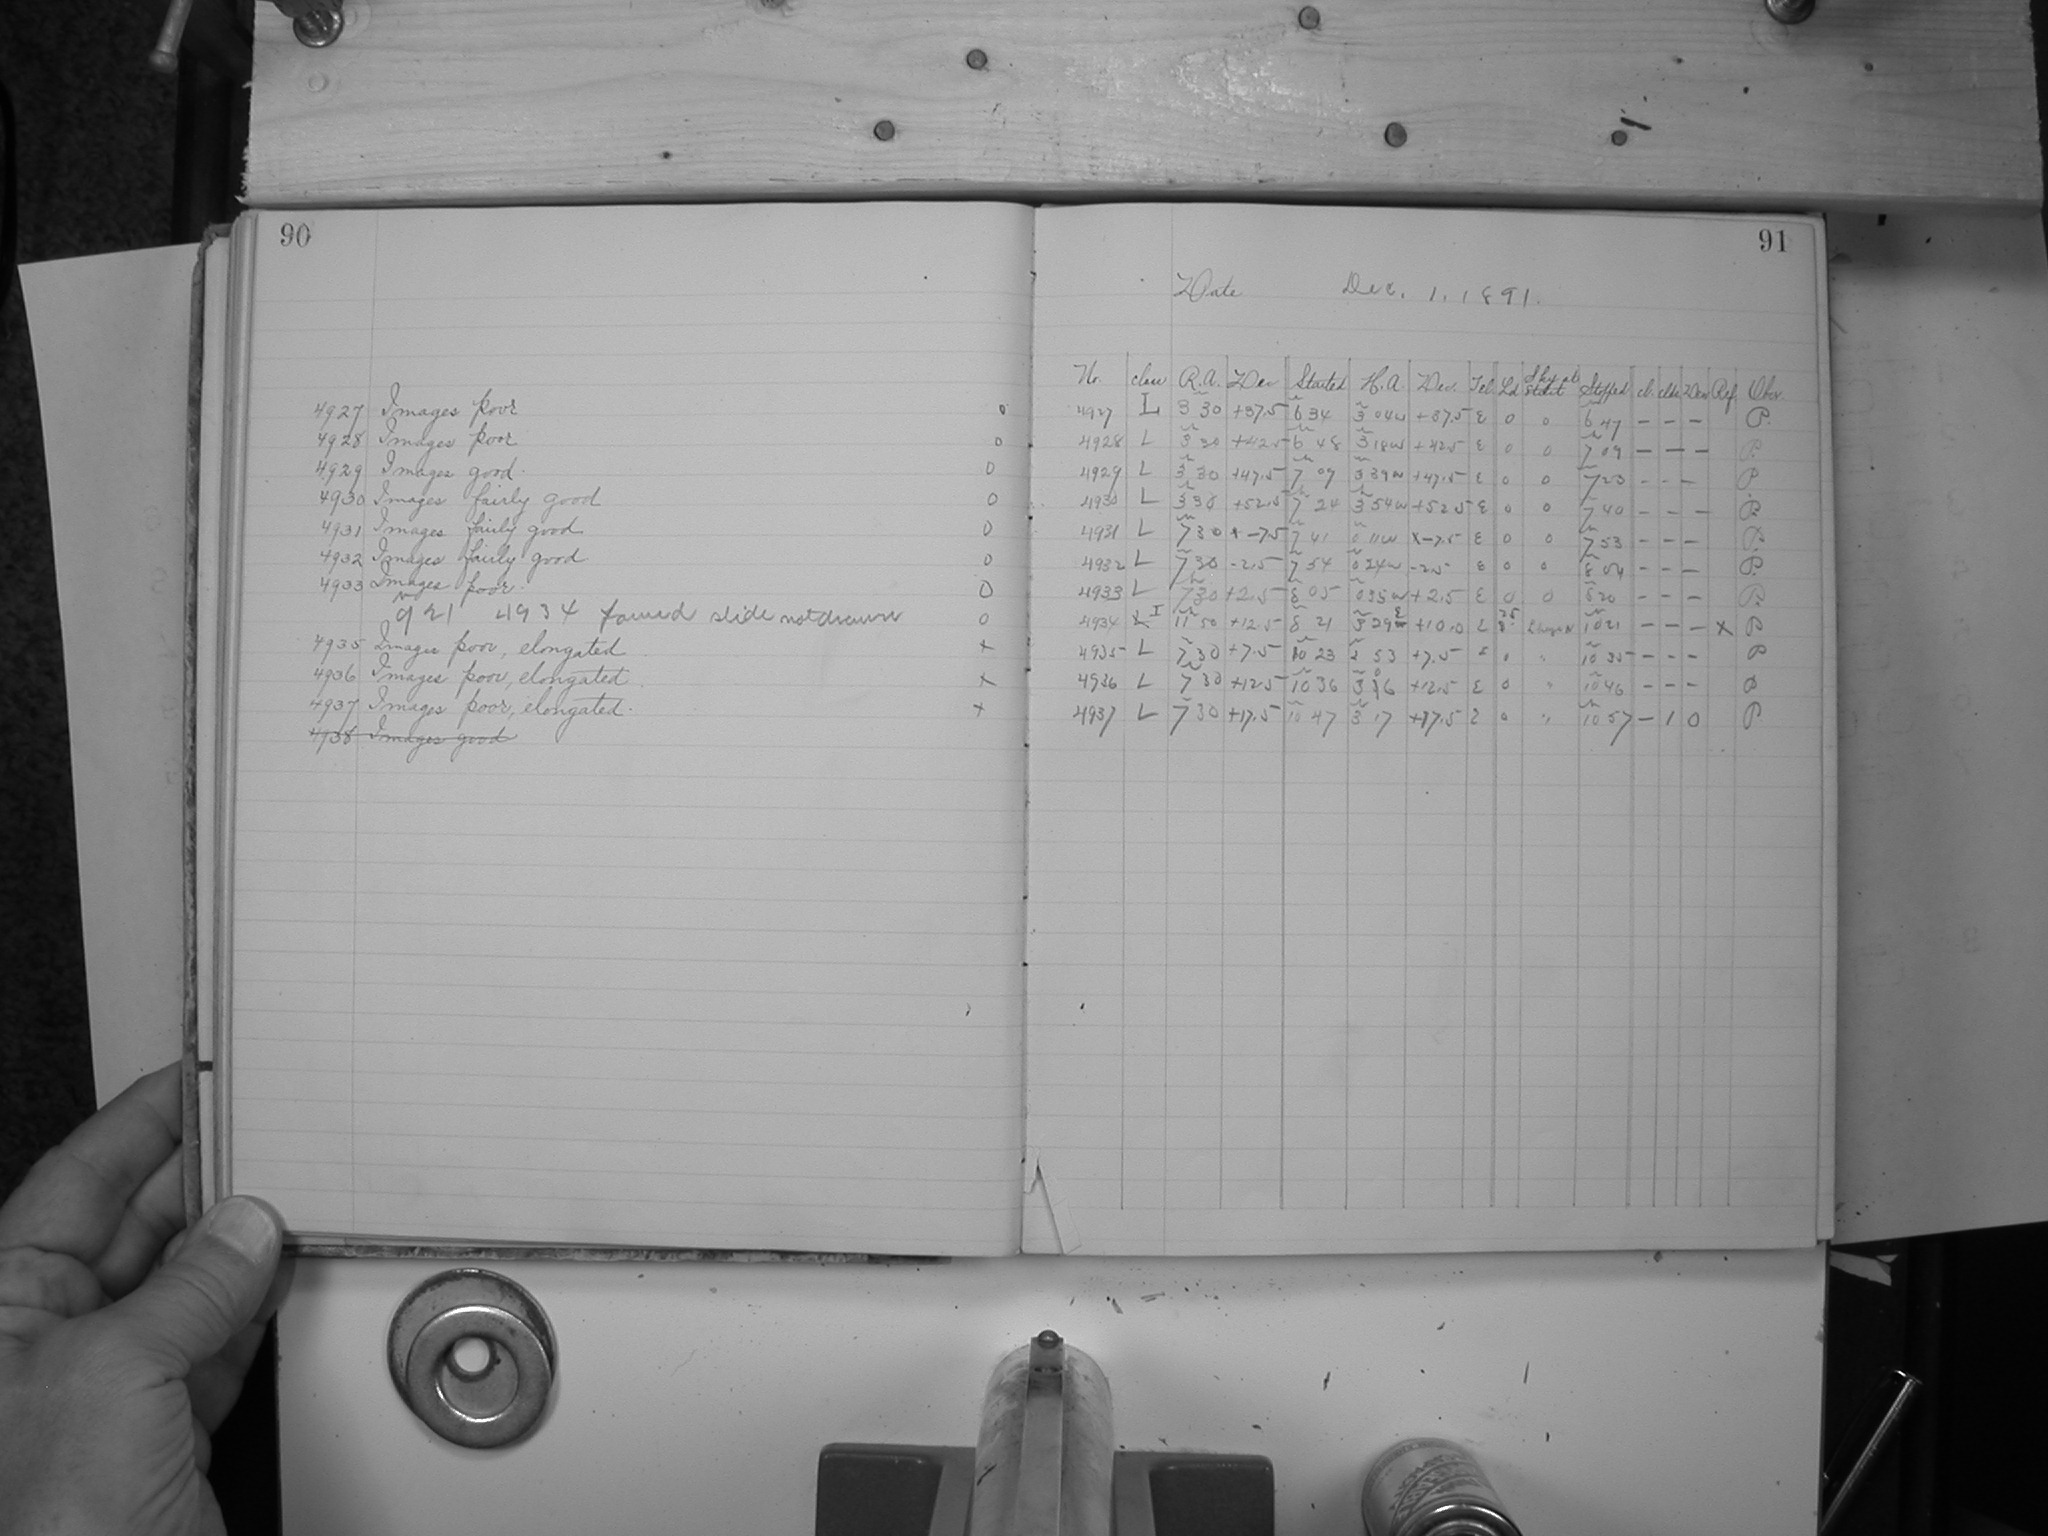 90
4927 Images poor 0
4928 Images poor 0
4929 Images good. 0
4930 Images fairly good 0
4931 Images fairly good 0
4932 Images fairly good 0
4933 Images poor. 0
9 21 4934 found slide not drawn 0
4935 Images poor, elongated x
4936 Images poor, elongated x
4937 Images poor, elongated. x
4938 Images good
91
Date Dec. 1, 1891.
No. class R.A. Dec Started H.A. Dec. Tel. Ld Sky at start Stopped cl. Dew Ref Obsr.
4927 L 3 30 +37.5 6 34 3 04w +37.5 E 0 0 6 47 - - - P.
4928 L 3 30 +42.5 6 48 3 18w +42.5 E 0 0 7 09 - - - P.
4929 L 3 30 +47.5 7 09 3 39w +47.5 E 0 0 7 23 - - - P.
4930 L 3 30 +52.5 7 24 3 54w +52.5 E 0 0 7 40 - - - P.
4931 L 7 30 x -7.5 7 41 0 11w x-7.5 E 0 0 7 53 - - - P.
4932 L 7 30 -2.5 7 54 0 24w -2.5 E 0 0 8 04 - - - P.
4933 L 7 30 +2.5 8 05 0 35w +2.5 E 0 0 8 20 - - - P.
4934 I 11 50 +12.5 8 21 3 29 E +10.0 L 10 21 - - - X P
4935 L 7 30 +7.5 10 23 53 +7.5 0 " 10 35 - - - P
4936 L 7 30 +12.5 10 36 3 06 +12.5 E 0 " 10 46 - - - P
4937 L 7 30 +17.5 10 47 3 17 +17.5 E 0 " 10 57 - 1 0 P